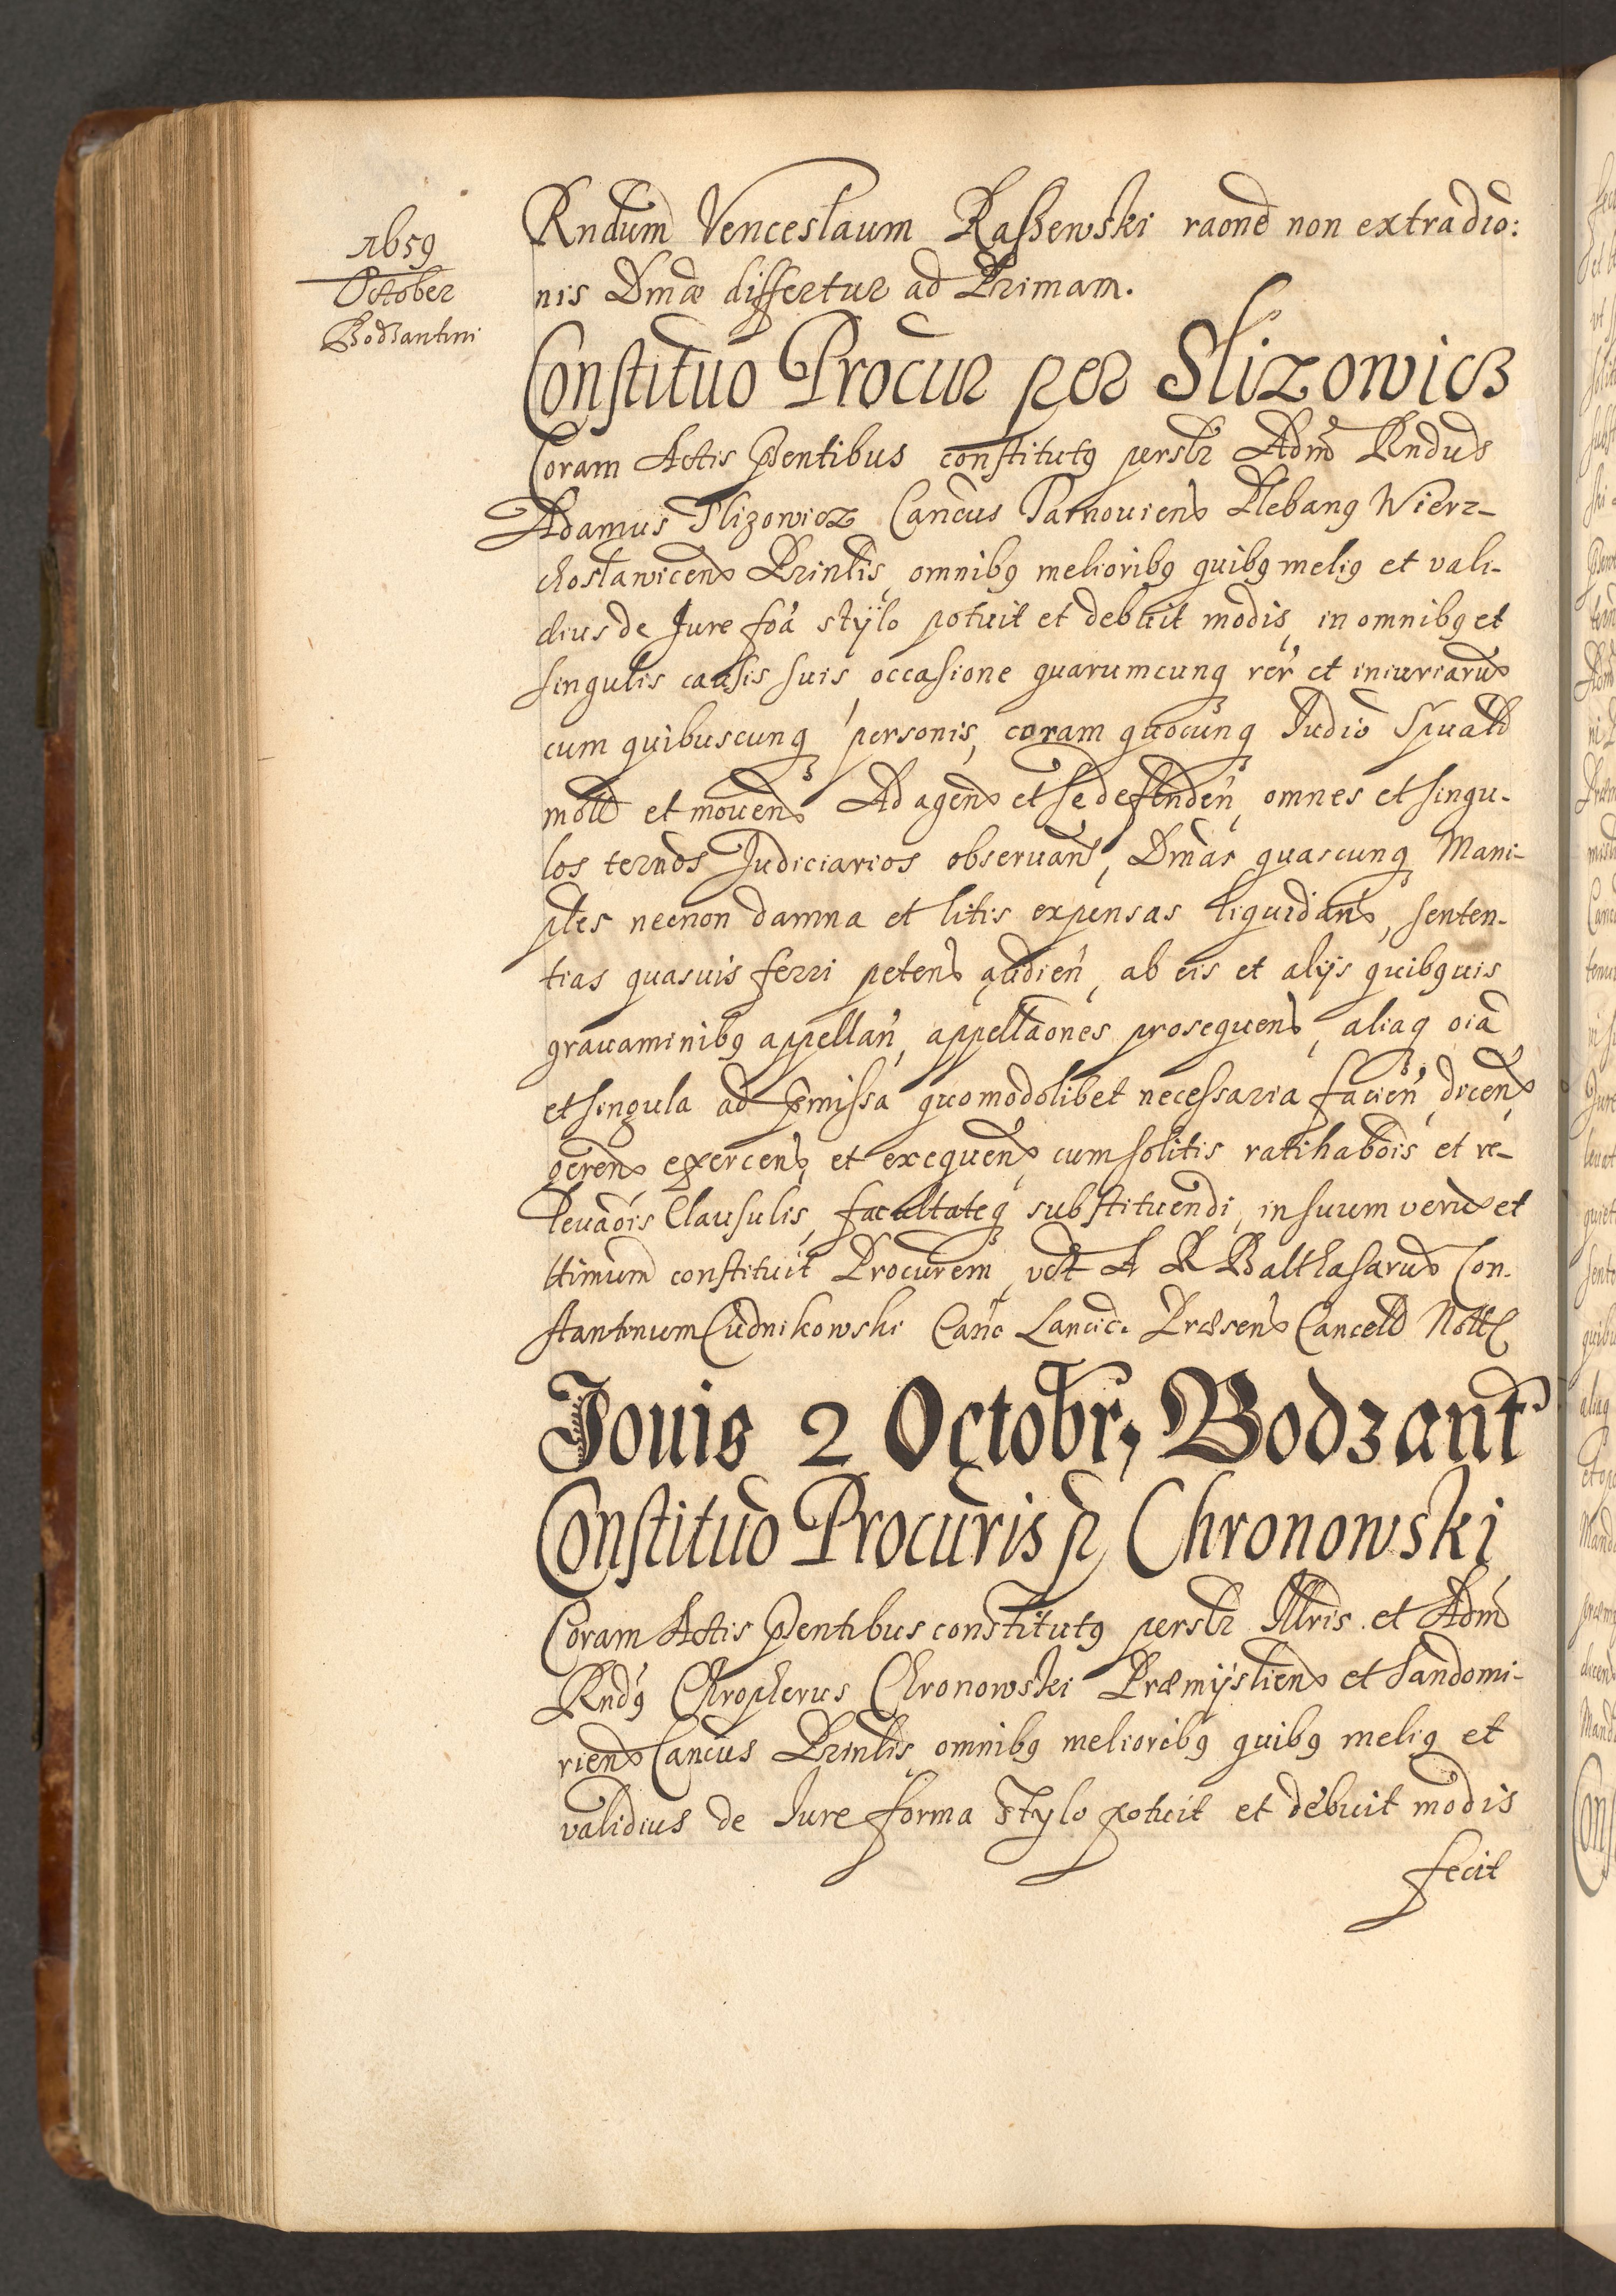 1659
October
Bodzantini
Rndum Venceslaum Raszewski raone non extradio:
nis Dmae differtur ad Primam.
Constituo Procur per Slizowicz
Coram Actis pntibus constitutq perslr Admo Rndus
Adamus Slizowicz Cancus Tarnouien Plebanq Wierz-
choslawicen Prinlis, omnibq melioribq quibq meliq et vali-
dius de Jure foa stÿlo potuit et debuit modis, in omnibq et
singulis causis suis, occasione quarumcunq rer et iniuriarum
cum quibuscunq personis, coram quocunq Judio Spuali
motis et mouen Ad agen et se defenden, omnes et singu-
los ternos Judiciarios obseruan, Dmas quascunq Mani-
ples necnon damna et litis expensas liquidan, senten-
tias quasuis ferri peten audien, ab eis et alijs quibquis
grauaminibq appellan, appellaones prosequen, aliaq oia
et singula ad pmissa quomodolibet necessaria facien, dicen,
geren, exercen, et exequen, cum solitis ratihabois et re-
leuaois Clausulis, facultateq substituendi, in suum verum et
ltimum constituit Procurem, vdt A R Balthasarum Con-
stantinum Cudnikowski Canc Lancic. Praesen Cancell Nott
Jouis 2 Octobr, Bodzant
Constituo Procuris p Chronowski
Coram Actis pntibus constitutq perslr Illris et Adm
Rndq Chropherus Chronowski Praemÿslien et Sandomi-
rien Cancus Prinlis, omnibq melioribq quibq meliq et
validius de Jure forma stylo potuit et debuit modis
fecit